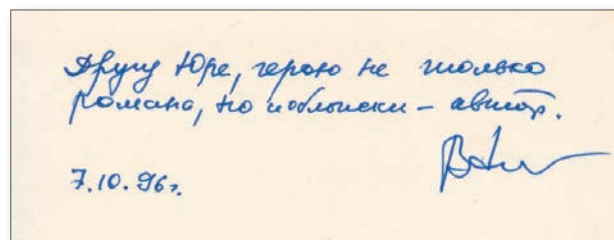 Другу Юре, герою не только
романа, но и обложки – автор.
7.10.96г.